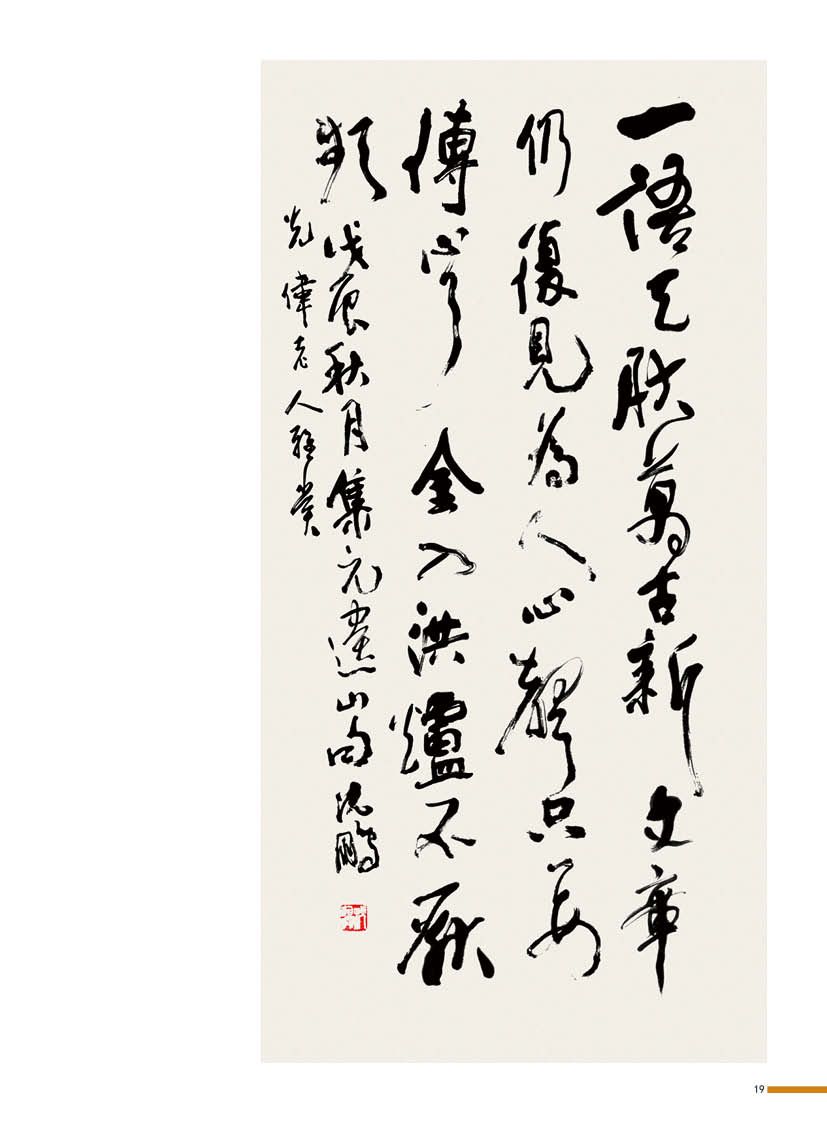 一語天然萬古新文章
仍復見為人心聲只要
傳心了金入洪爐不厭
頻戊辰秋月集元遺山句沈鵬
光偉老人雅賞
19